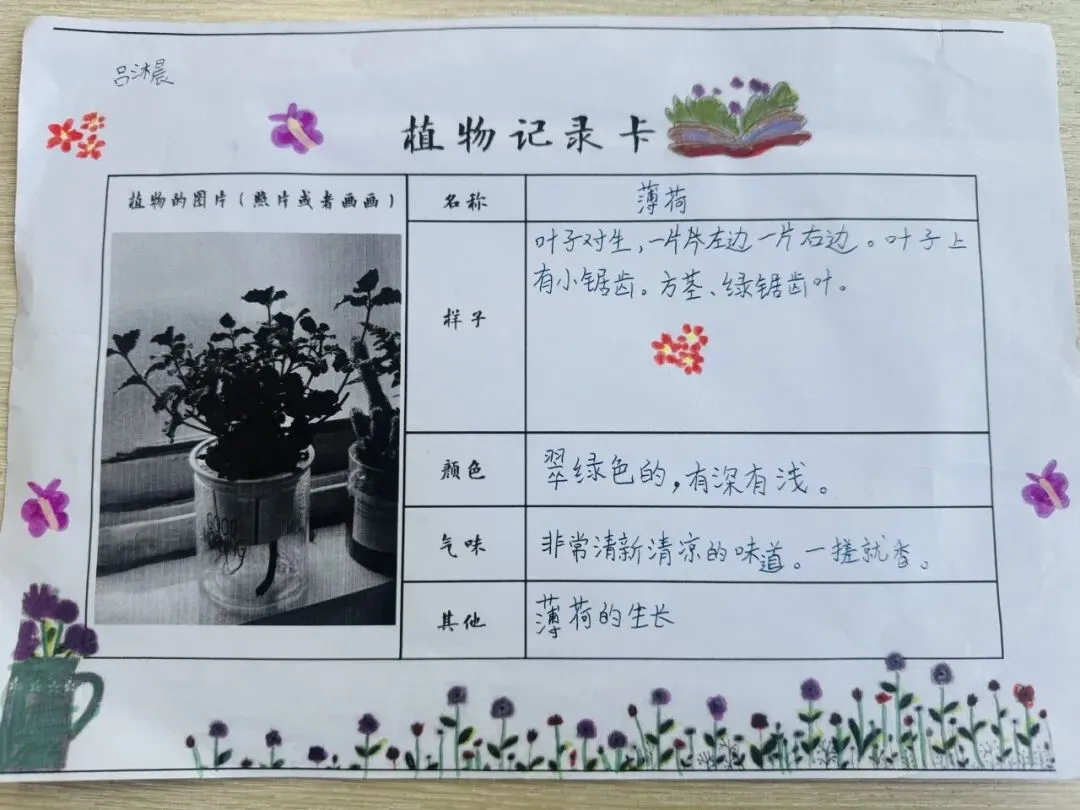 吕沐晨
植物记录卡
植物的图片（照片或者画画）
GOOD
MORNING
名称
薄荷
样子
叶子对生，一片片左边一片右边。叶子上
有小锯齿。方茎、绿锯齿叶。
颜色
翠绿色的，有深有浅。
气味
非常清新清凉的味道。一搓就香。
其他
薄荷的生长